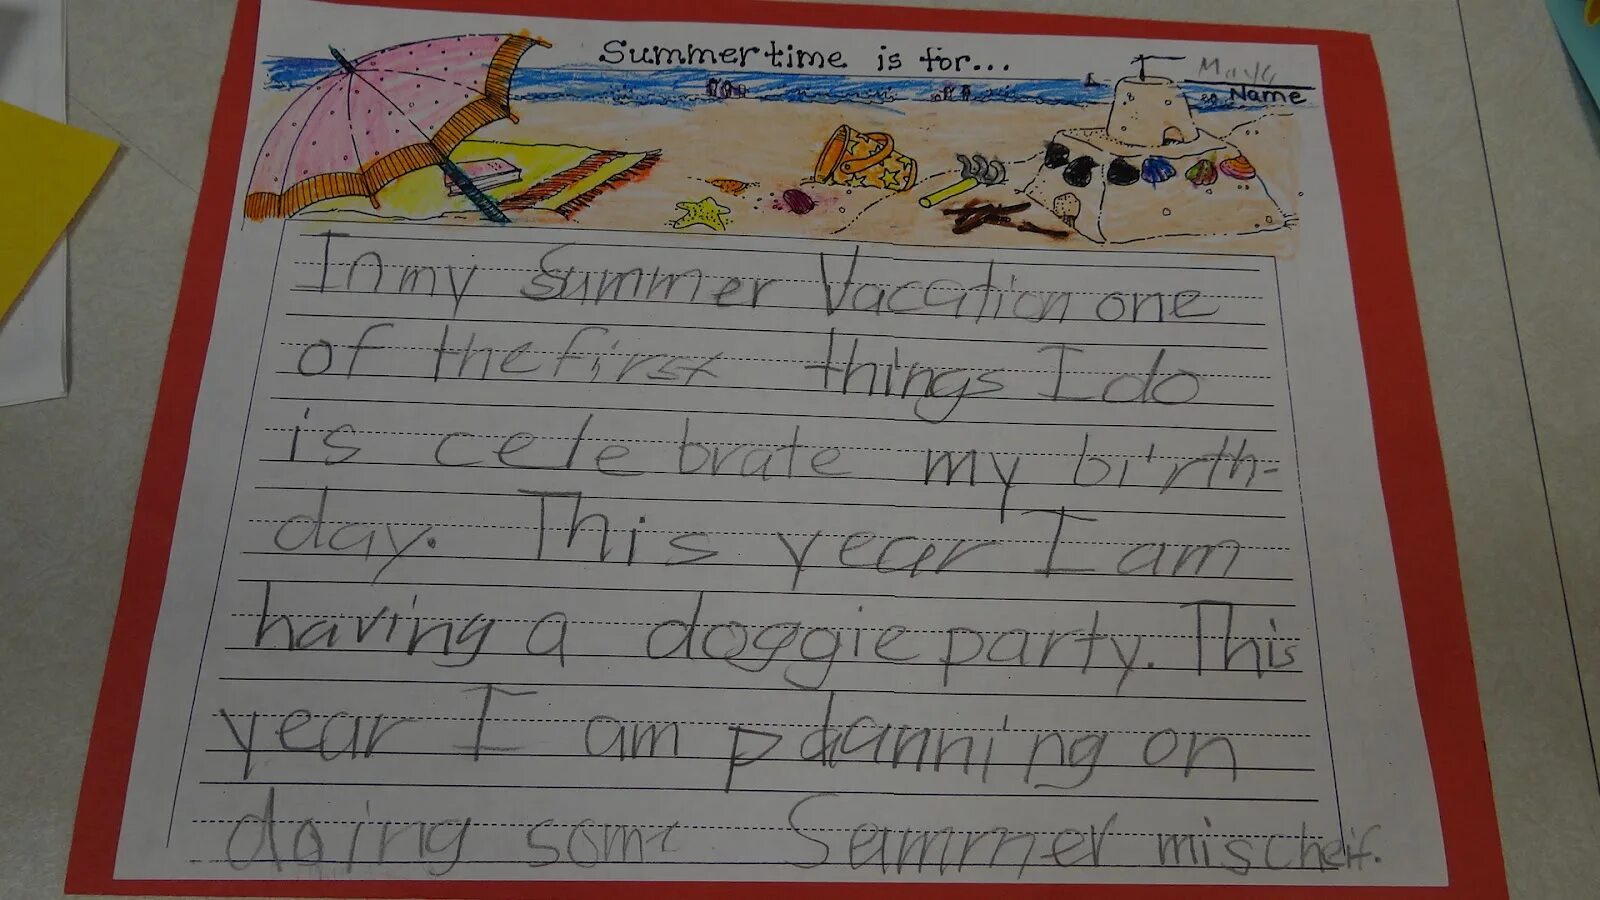 Summertime is for...
Maya
Name
In my Summer Vacation one
of the first things I do
is celebrate my birth-
day. This year I am
having a doggie party. This
year I am planning on
doing some Summer mischeif.